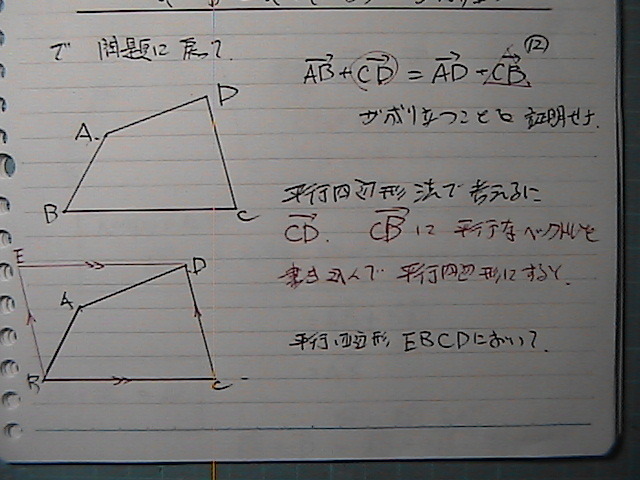 で 問題に戻って
⑫
AB + CD = AD + CB
が成り立つことを証明せよ.
A
D
B
C
平行四辺形法で考えるに
CD. CBに平行なベクトルを
書き込んで平行四辺形にすると.
E
D
A
B
C
平行四辺形 EBCDにおいて.